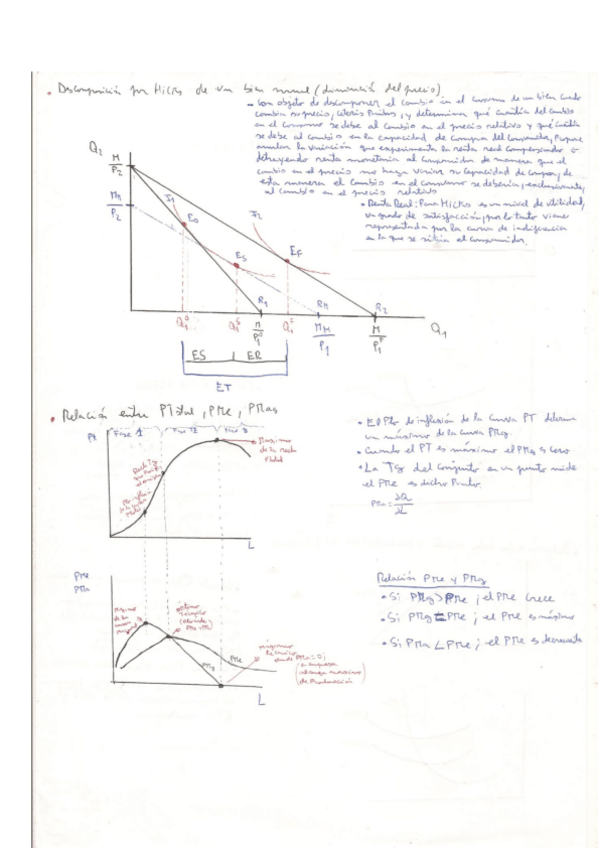 • Descomposición por Hicks de un bien normal (disminución del precio)
– Con objeto de descomponer el cambio en el consumo de un bien cuando
cambia su precio, céteris Páribus, y determinar qué cuantía del cambio
en el consumo se debe al cambio en el precio relativo y qué cuantía
se debe al cambio en la capacidad de compra del consumidor, propone
anular la variación que experimenta la renta real compensando o
detrayendo renta monetaria al consumidor de manera que el
cambio en el precio no haga variar su capacidad de compra, de
esta manera el cambio en el consumo se debería, exclusivamente,
al cambio en el precio relativo
• Renta Real: Para Hicks es un nivel de utilidad,
un grado de satisfacción, por lo tanto viene
representada por la curva de indiferencia
en la que se sitúa el consumidor.
Q2
M/P2
MH/P2
I1
I2
E0
ES
EF
R1
RH
R2
Q1
M/P1
MH/P1
M/P1
ES
ER
ET
• Relación entre PTotal, PMe, PMag
Pt
Fase 1
Fase 2
Fase 3
Máximo
L
• El Pto de inflexión de la curva PT determina
un máximo de la curva PMg.
• Cuando el PT es máximo el PMg es cero
• La Tg del conjunto en un punto mide
el PMe en dicho Punto.
PMa = ∂Q/∂L
PMe
PMa
óptimo
PMg
PMe
máximo
L
Relación PMe y PMg
• Si PMg > PMe ; el PMe crece
• Si PMg = PMe ; el PMe es máximo
• Si PMa < PMe ; el PMe es decreciente